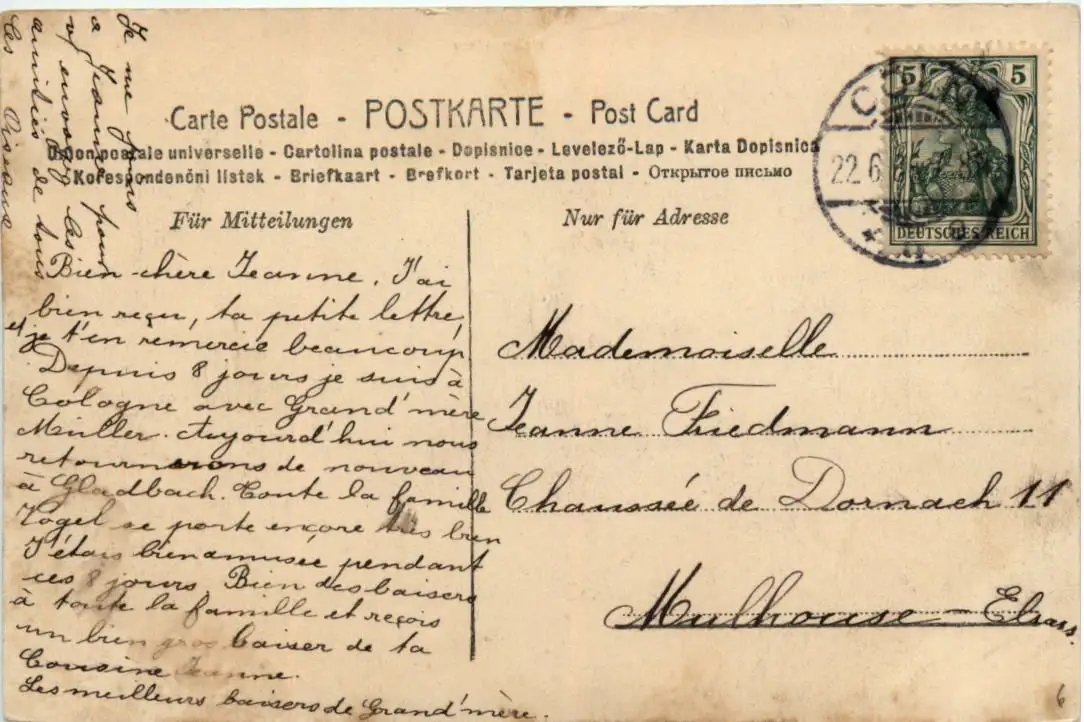 Carte Postale - POSTKARTE - Post Card
Union postale universelle - Cartolina postale - Dopisnice - Levelező-Lap - Karta Dopisnica
Korespondenční listek - Briefkaart - Brefkort - Tarjeta postal - Открытое письмо
Für Mitteilungen
Nur für Adresse
5 5
DEUTSCHES REICH
CÖLN
22.6
Bien chère Jeanne. J'ai
bien reçu, ta petite lettre,
et je t'en remercie beaucoup
Depuis 8 jours je suis à
Cologne avec Grand'mère
Müller. Aujourd'hui nous
retournerons de nouveau
à Gladbach. Toute la famille
Vogel se porte encore très bien
J'étais bien amusée pendant
ces 8 jours. Bien des baisers
à toute la famille et reçois
un bien gros baiser de ta
Cousine Jeanne.
Les meilleurs baisers de Grand'mère.
Je me joins
a Jeanne pour
v/ envoyer les
amitiés de tous
les Oiseaux
Mademoiselle
Jeanne Friedmann
Chaussée de Dornach 11
Mulhouse - Elsass.
6